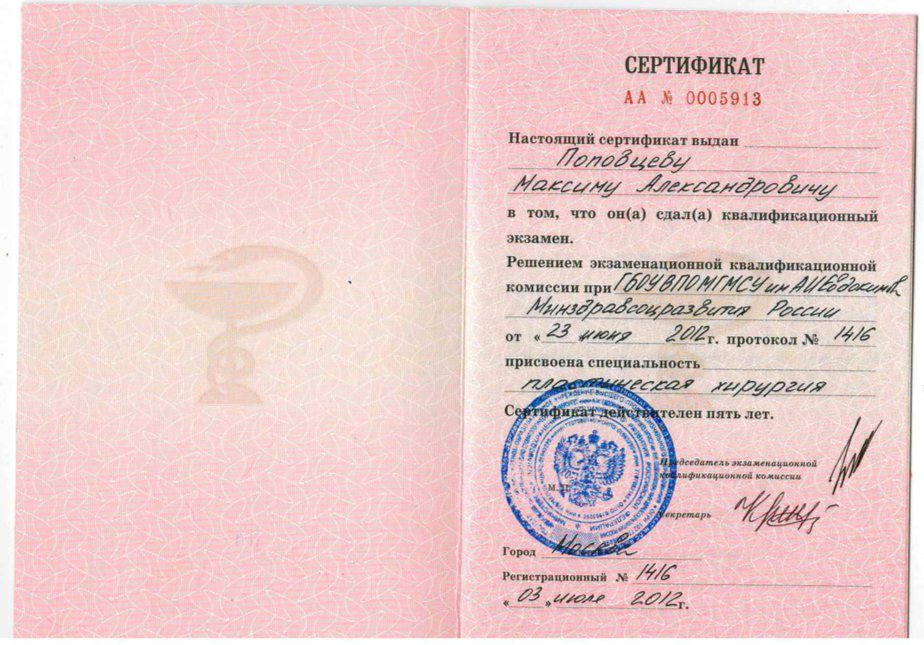 СЕРТИФИКАТ
АА № 0005913
Настоящий сертификат выдан
Поповцеву
Максиму Александровичу
в том, что он(а) сдал(а) квалификационный
экзамен.
Решением экзаменационной квалификационной
комиссии при ГБОУ ВПО МГМСУ им А.И. Евдокимова
Минздравсоцразвития России
от « 23 июня 2012 г. протокол № 1416
присвоена специальность
пластическая хирургия
Сертификат действителен пять лет.
Председатель экзаменационной
квалификационной комиссии
М.П.
Секретарь
Город Москва
Регистрационный № 1416
« 03 » июля 2012 г.